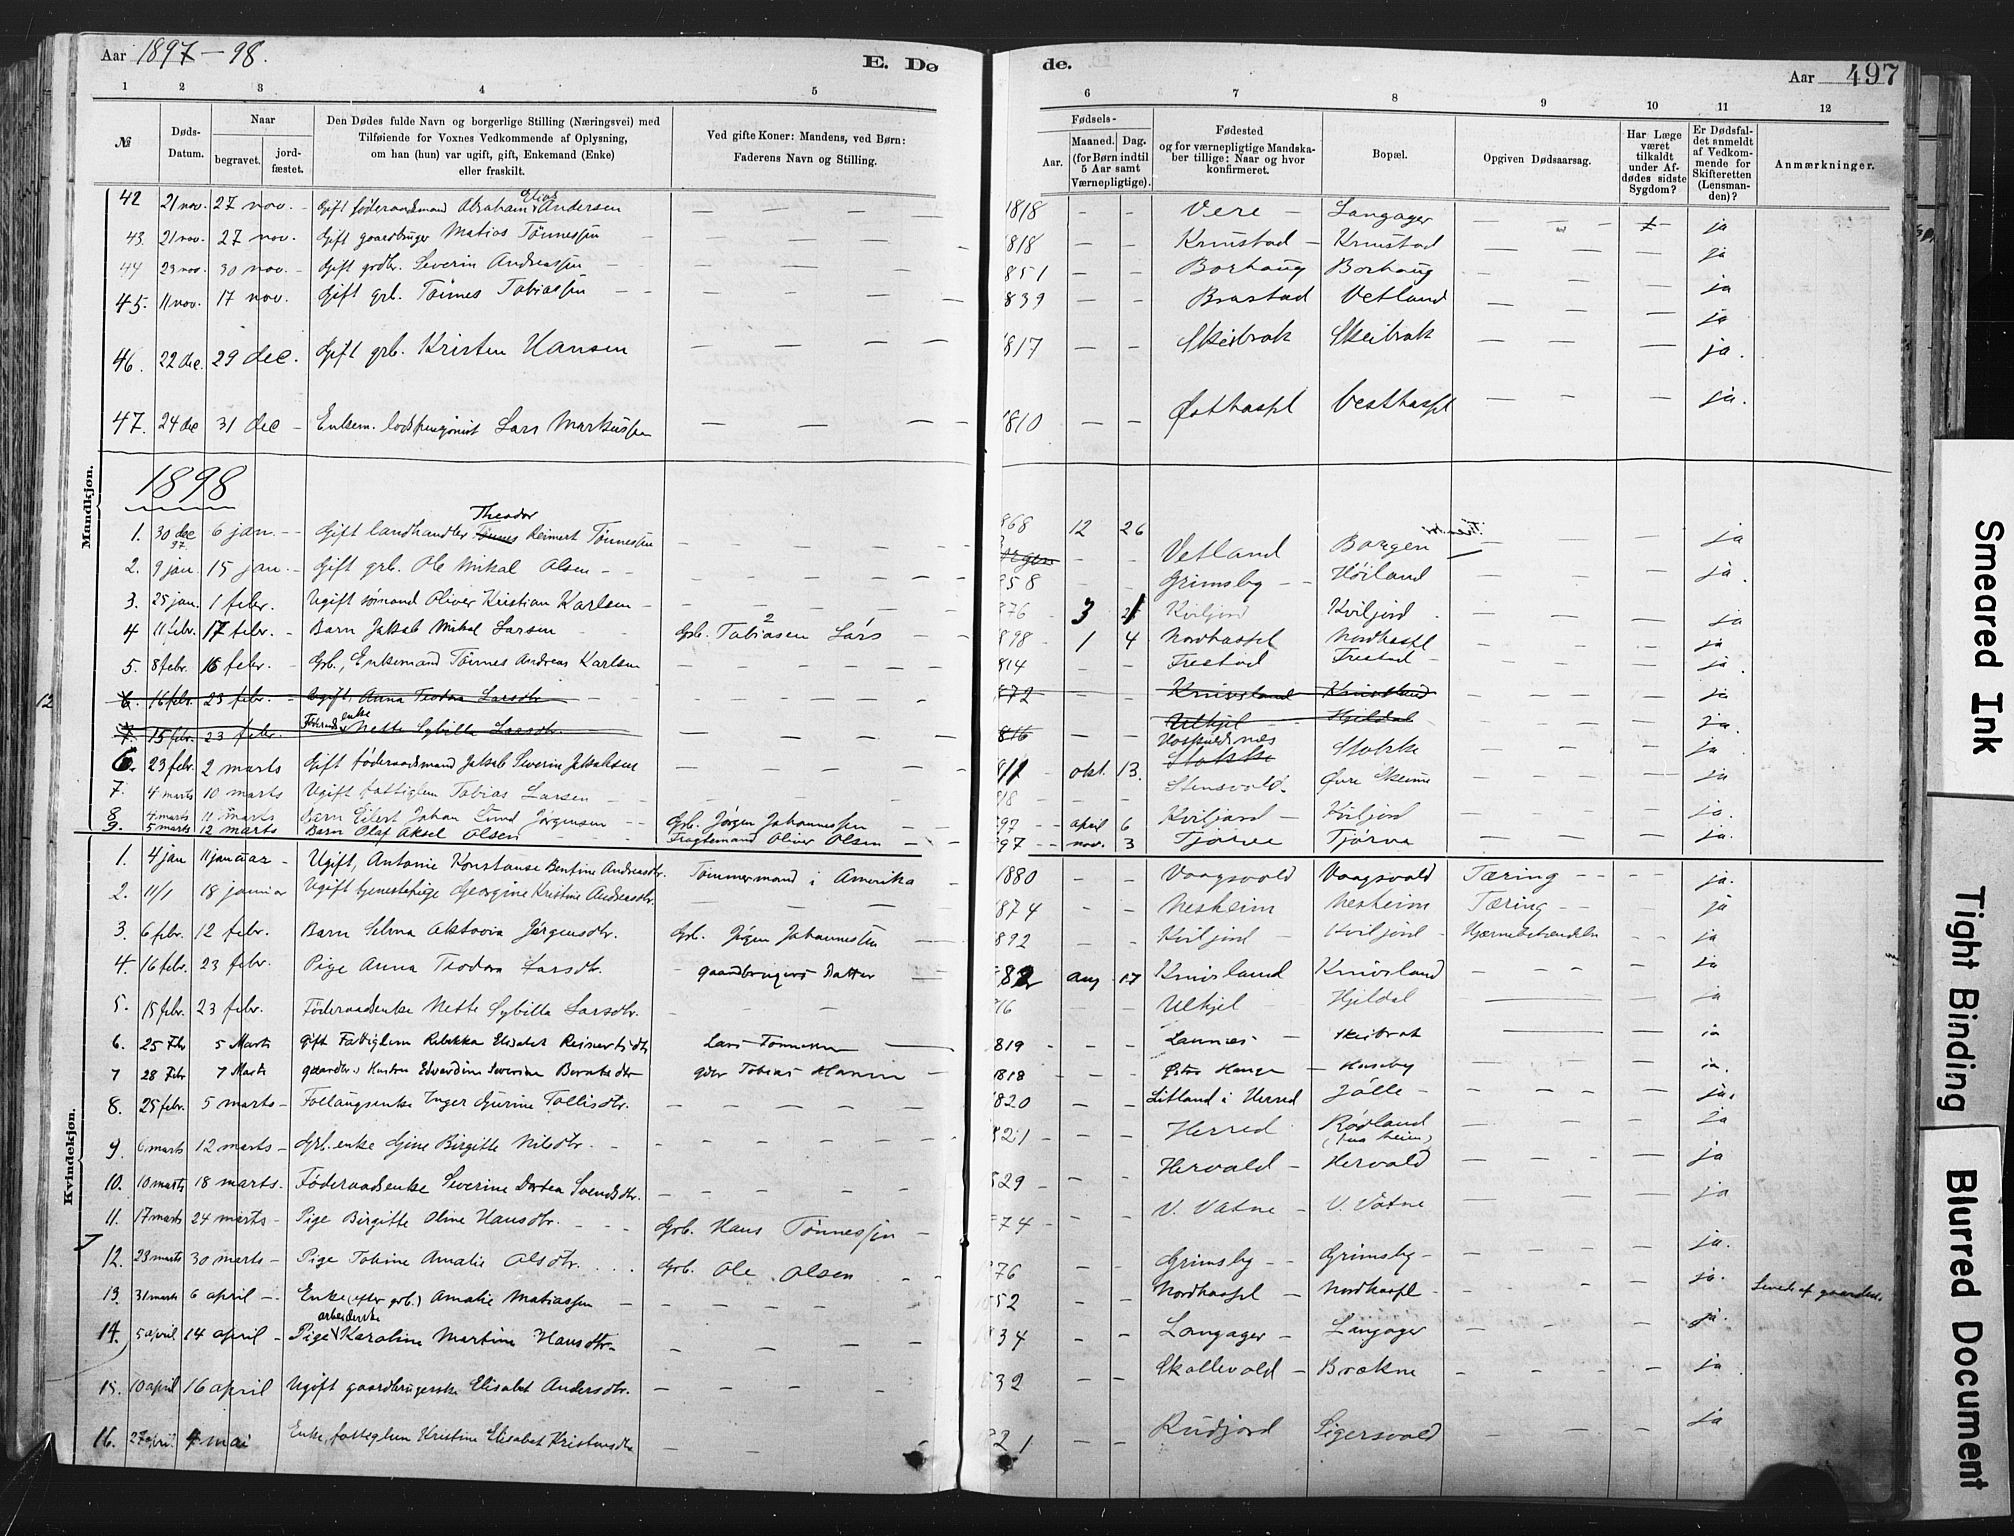 Aar 1897–98.
E. Dø
de.
Aar 497
1 2 3 4 5
6 7 8 9 10 11 12
№
Døds-Datum.
Naar
begravet.
jordfæstet.
Den Dødes fulde Navn og borgerlige Stilling (Næringsvei) med
Tilføiende for Voxnes Vedkommende af Oplysning,
om han (hun) var ugift, gift, Enkemand (Enke)
eller fraskilt.
Ved gifte Koner: Mandens, ved Børn:
Faderens Navn og Stilling.
Fødsels-
Aar.
Maaned. Dag.
(for Børn indtil
5 Aar samt
Værnepligtige).
Fødested
og for værnepligtige Mandska-
ber tillige: Naar og hvor
konfirmeret.
Bopæl.
Opgiven Dødsaarsag.
Har Læge
været
tilkaldt
under Af-
dødes sidste
Sygdom?
Er Dødsfal-
det anmeldt
af Vedkom-
mende for
Skifteretten
(Lensman-
den)?
Anmærkninger.
Mandkjøn.
42 21 nov. 27 nov. – Gift føderaadsmand Abraham Elias Andersen – 1818 – – Vere – Langager – ja
43. 21 nov. 27 nov. Gift gaardbruger Matias Tønnessen – 1818 – – Knustad – Knustad – ja
44 23 nov. 30 nov. – Gift grdbr. Severin Andreassen – 851 – – Borhaug Borhaug – ja
45. 11 nov. 17 nov. Gift grb. Tønnes Tobiassen – 839 – – Brastad Vetland – ja
46. 22 dec. 29 dec. – Gift grb. Kristen Hansen – 1817 – – Skeibrok Skeibrok – ja.
47. 24 dec 31 dec – Enkem. Lars Markussen – 1810 – – Østhassel Vesthassel – ja.
1898
1. 30 dec 97 6 jan. – Gift landhandler Theodor Tønnes Reinert Tønnessen – 868 12 26 Vetland Borgen – ja
2. 9 jan. 15 jan. – Gift grb. Ole Mikal Olsen – 858 – – Grimsby – Høiland – ja.
3. 25 jan. 1 febr. Ugift sømand Oliver Kristian Karlsen – 876 3 Kviljord Kviljord – ja
4 11 febr. 17 febr. – Barn Jakob Mikal Larsen – Grb. Tobiasen Lars 2 – 898 1 4 Nordhassel Nordhassel – ja
5. 8 febr. 16 febr. – Grb., Enkemand Tønnes Andreas Karlsen – 814 – – Frestad Frestad – ja
12
6. 16 febr. 23 febr. – Ugift, Anna Teodora Larsdtr. – 872 Knivsland Knivsland – ja
7. 15 febr. 23 febr. Føderaads enke Nette Sybille Larsdtr. – 816 Ulhjel Hjeldal – ja.
6. 23 febr. 2 marts Gift føderaadsmand Jakob Severin Jakobsen – 811 okt. 13. Stokke Stokke – ja
7. 4 marts 10 marts Ugift fattiglem Tobias Larsen – 818 – – Stensvold. Øvre Skeime – ja
8 4 marts 11 marts Barn Eilert Johan Lund Jørgensen – Grb. Jørgen Johannessen – 897 – april 6 Kviljord – Kviljord – ja.
9. 5 marts 12 marts Barn Olaf Aksel Olsen – Fragtemand Oliver Olsen – 897 – nov. 3 Tjørve Tjørve – ja.
Kvindekjøn.
1. 4 jan 11 januar – Ugift, Antonie Konstanse Bentine Andreasdtr. Tømmermand i Amerika – 1880 – – Vaagsvold Vaagsvold Tæring – – ja.
2. 11/1 18 januar Ugift tjenestepige Georgine Kristine Andreasdtr. – 1874 – – Nesheim Nesheim Tæring – – ja
3. 6 febr. 12 febr. Barn Selma Aktovia Jørgensdtr. Grb. Jørgen Johannessen – 1892 – – Kviljord – Kviljord – Hjernebetændelse – ja
4. 16 febr. 23 febr. Pige Anna Teodora Larsdtr. – gaardbrugers Datter – 882 aug 17 Knivsland Knivsland – ja
5. 15 febr. 23 febr. Føderaadsenke Nette Sybille Larsdtr. – 816 – – Ulhjel Hjeldal – ja
6. 25 Febr 5 Marts gift Fattiglem Rebekka Elisabet Reinertsdtr Lars Tønnesen – 1819 – – Launes – Skeibrok – ja
7 28 Febr 7 Marts gaardbr. Kusten Edvardine Severine Berntsdtr gdbr Tobias Hansen – 1818 – – Østre Hauge – Huseby – ja.
8. 25 febr. 5 marts – Follaugsenke Inger Gurine Tollisdtr. – 1820 – – Litland i Herred Jølle – ja.
9. 6 marts 12 marts – Grb. enke Gine Birgitte Nilsdtr. – 821 – – Herred Rødland – ja
10. 10 marts 18 marts – Føderaadsenke Severine Dortea Svendsdtr. – 829 – – Hervold – Hervold – ja
11. 17 marts 24 marts – Pige Birgitte Oline Hansdtr. – Grb. Hans Tønnessen – 874 – – V. Vatne – V. Vatne – ja
12. 23 marts 30 marts – Pige Tobine Amalie Olsdtr. Grb. Ole Olsen – 876 – – Grimsby – Grimsby – ja.
13. 31 marts 6 april – Enke (efter grb.) Amalie Matiassen – 852 – – Nordhassel – Nordhassel – ja. Levede af gaarden.
14. 5 april 14 april – Pige arbeiderske Karoline Martine Hansdtr. – 834 – – Langager – Langager – ja.
15. 10 april 16 april Ugift gaardbrugerske Elisabet Andersdtr. – 832 – – Skollevold – Brækne – ja
16. 27 april 4 mai Enke, fattiglem Kristine Elisabet Kristensdtr – 821 – – Rudjord Sigersvold – ja
Smeared Ink
Tight Binding
Blurred Document